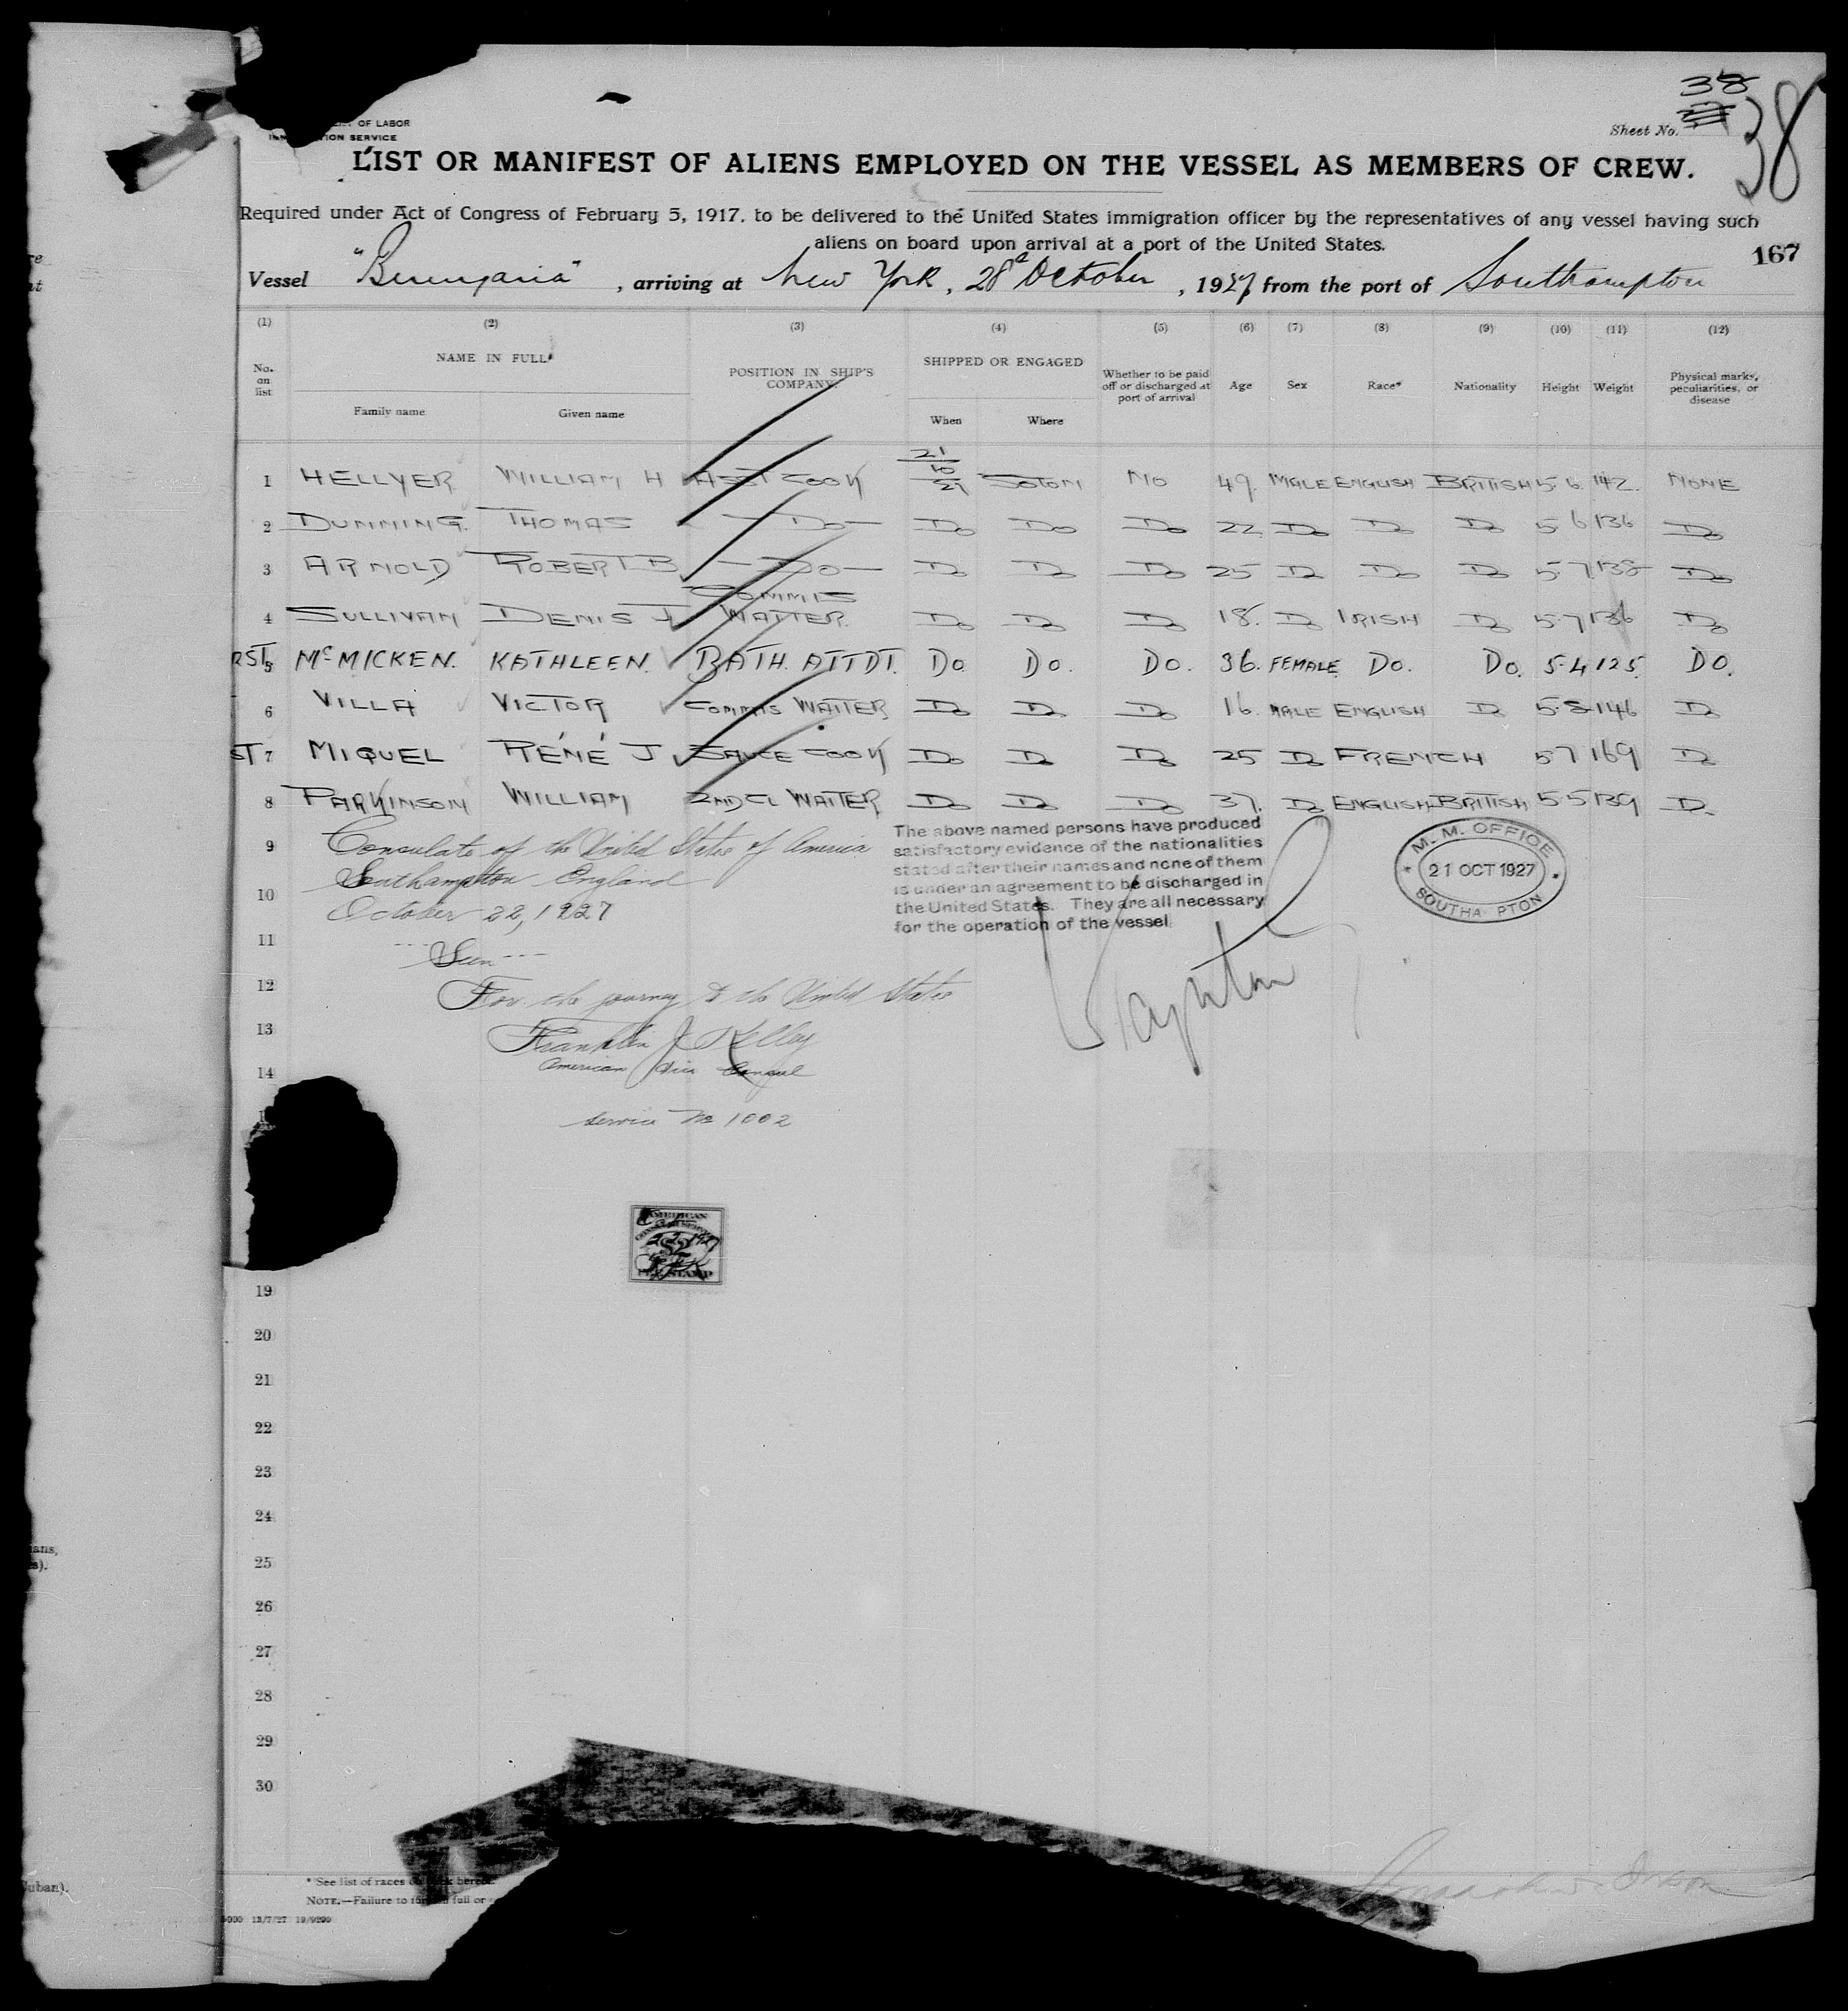 OF LABOR
ION SERVICE
38
Sheet No.
38
LIST OR MANIFEST OF ALIENS EMPLOYED ON THE VESSEL AS MEMBERS OF CREW.
Required under Act of Congress of February 5, 1917, to be delivered to the United States immigration officer by the representatives of any vessel having such
aliens on board upon arrival at a port of the United States.
167
Vessel "Berengaria", arriving at New York, 28th October, 1927, from the port of Southampton
(1) (2) (3) (4) (5) (6) (7) (8) (9) (10) (11) (12)
No. on list NAME IN FULL POSITION IN SHIP'S COMPANY. SHIPPED OR ENGAGED Whether to be paid off or discharged at port of arrival Age Sex Race* Nationality Height Weight Physical marks, peculiarities, or disease
Family name Given name When Where
1 HELLYER WILLIAM H ASST COOK 21/10/27 SOTON NO 49. MALE ENGLISH BRITISH 5.6 142. NONE
2 DUNNING. THOMAS —Do— Do Do Do 22 Do Do Do 5 6 136 Do
3 ARNOLD ROBERT B —Do— Do Do Do 25 Do Do Do 5.7 138 Do
4 SULLIVAN DENIS J COMMIS WAITER. Do Do Do 18. Do IRISH Do 5.7 136 Do
RST 5 McMICKEN. KATHLEEN. BATH. ATTDT. DO. DO. DO. 36. FEMALE DO. DO. 5.4 125. DO.
6 VILLA VICTOR COMMIS WAITER Do Do Do 16. MALE ENGLISH Do 5.8 146 Do
ST 7 MIQUEL RÉNÉ J SAUCE COOK Do Do Do 25 Do FRENCH 5 7 169 Do
8 PARKINSON WILLIAM 2ND CL WAITER Do Do Do 37. Do ENGLISH BRITISH 5.5 139 Do
9 Consulate of the United States of America
10 Southampton England
October 22, 1927
11 Seen
12 For the journey to the United States
13 Franklin J Kelley
14 American Vice Consul
Service No 1002
The above named persons have produced
satisfactory evidence of the nationalities
stated after their names and none of them
is under an agreement to be discharged in
the United States. They are all necessary
for the operation of the vessel.
M. M. OFFICE
21 OCT 1927
SOUTHA PTON
AMERICAN
FEE STAMP
19
20
21
22
23
24
25
26
27
28
29
30
* See list of races
NOTE.—Failure to full or
13/7/27 19/9299
ans,
s).
uban).